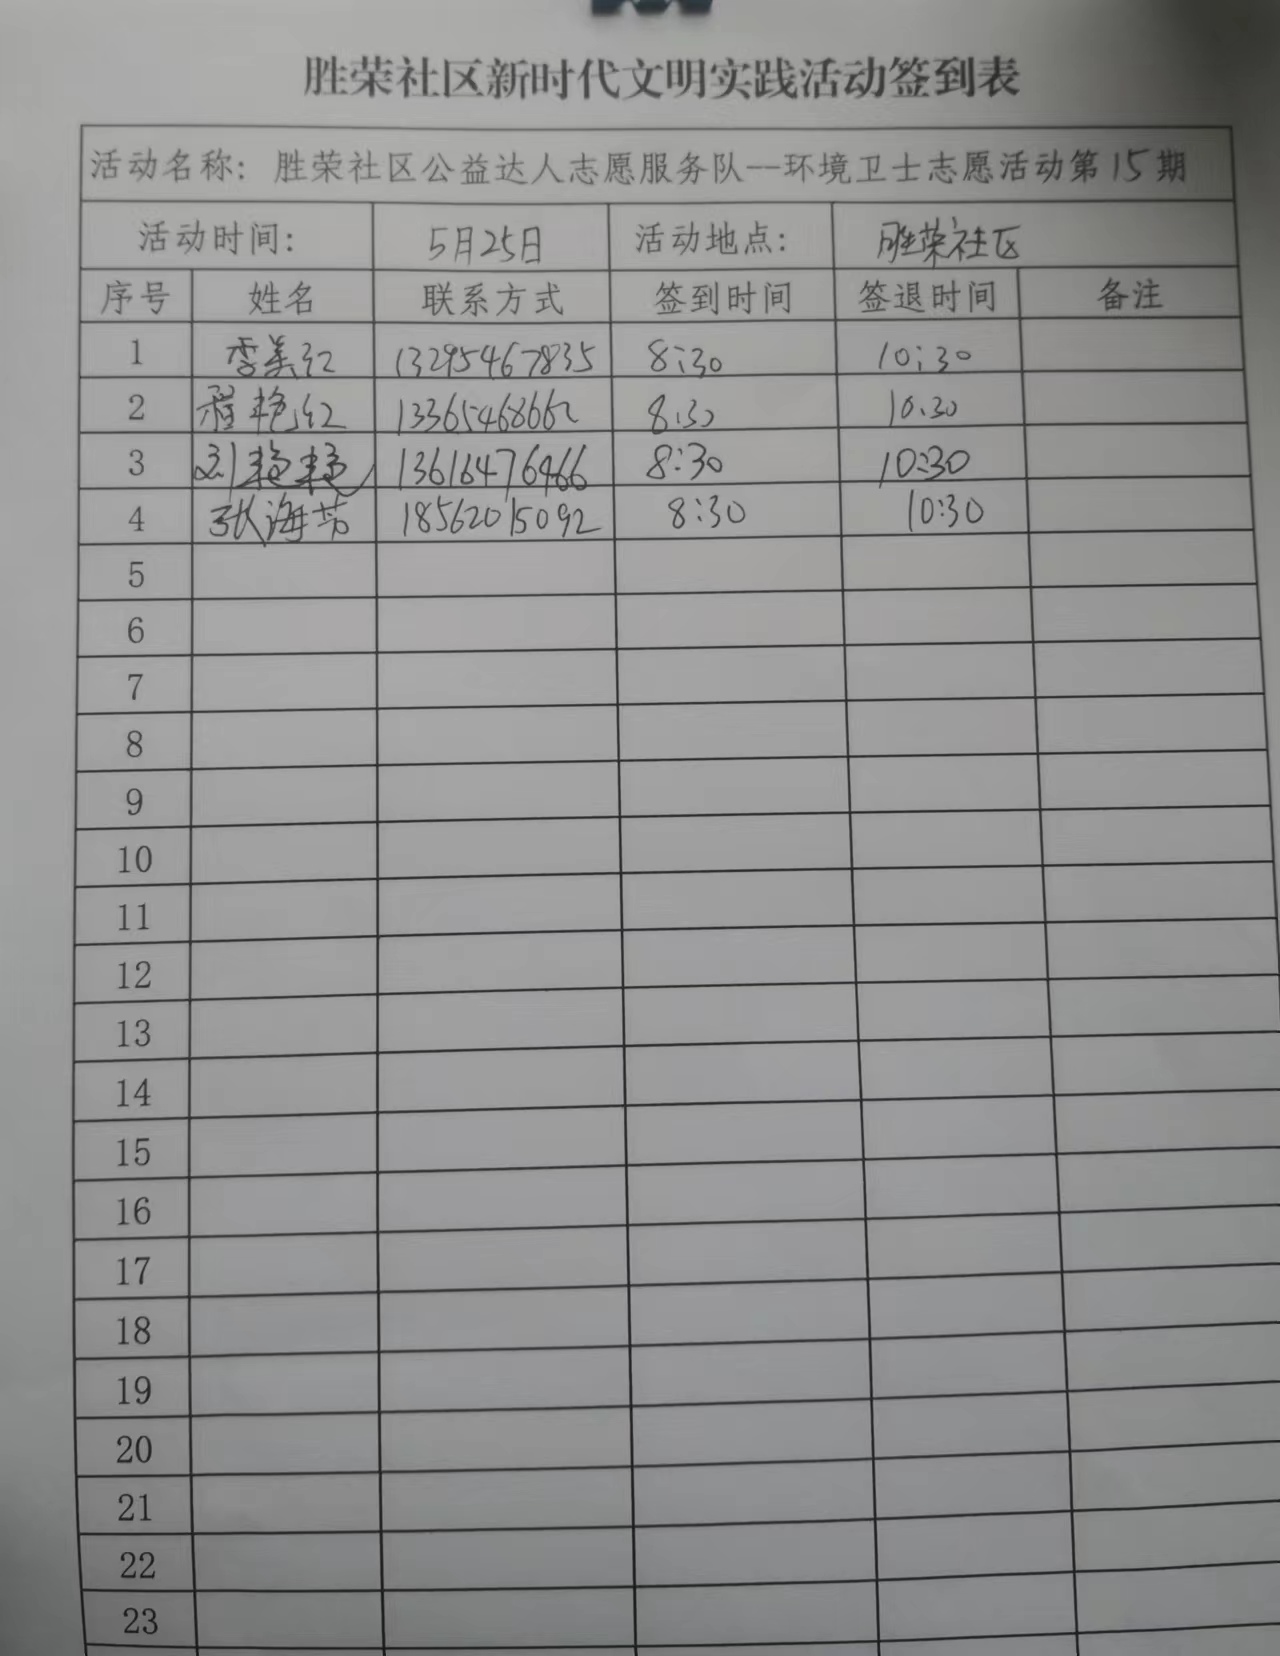 胜荣社区新时代文明实践活动签到表
活动名称: 胜荣社区公益达人志愿服务队--环境卫士志愿活动第15期
活动时间: 5月25日 活动地点: 胜荣社区
序号 姓名 联系方式 签到时间 签退时间 备注
1 李美红 13295467835 8:30 10:30
2 程艳红 13365468662 8:30 10:30
3 刘艳艳 13616476466 8:30 10:30
4 张海芳 18562015092 8:30 10:30
5
6
7
8
9
10
11
12
13
14
15
16
17
18
19
20
21
22
23